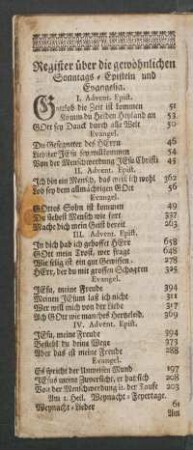 Register über die gewöhnlichen
Sonntags-Episteln und
Evangelia.
I. Advent. Epist.
Gottlob die Zeit ist kommen 51
Komm du Heiden Heyland an 53
GOtt sey Danck durch alle Welt 50
Evangel.
Du Gesegneter des HErrn 46
Liebster JEsu sey willkommen 54
Von der Menschwerdung JEsu Christi 45
II. Advent. Epist.
Ich bin ein Mensch, das weiß ich wohl 362
Lob sey dem allmächtigen GOtt 56
Evangel.
GOttes Sohn ist kommen 49
Du siehest Mensch wie fort 337
Mache dich mein Geist bereit 263
III. Advent. Epist.
In dich hab ich gehoffet HErr 658
GOtt mein Trost, wer fragt 648
Wie selig ist ein gut Gewissen 278
HErr, der du mit grossen Schaaren 325
Evangel.
JEsu, meine Freude 394
Meinen JEsum laß ich nicht 311
Wer will mich von der Liebe 317
Ach GOtt wie manches Hertzeleid 369
IV. Advent. Epist.
JEsu, meine Freude 394
Befiehl du deine Wege 373
Aber das ist meine Freude 288
Evangel.
Es spricht der Unweisen Mund 197
JEsus meine Zuversicht, er hat sich 208
Von der Menschwerdung in der Taufe 203
Am 1. Heil. Weynacht-Feyertage.
Weynacht-Lieder 61
Am